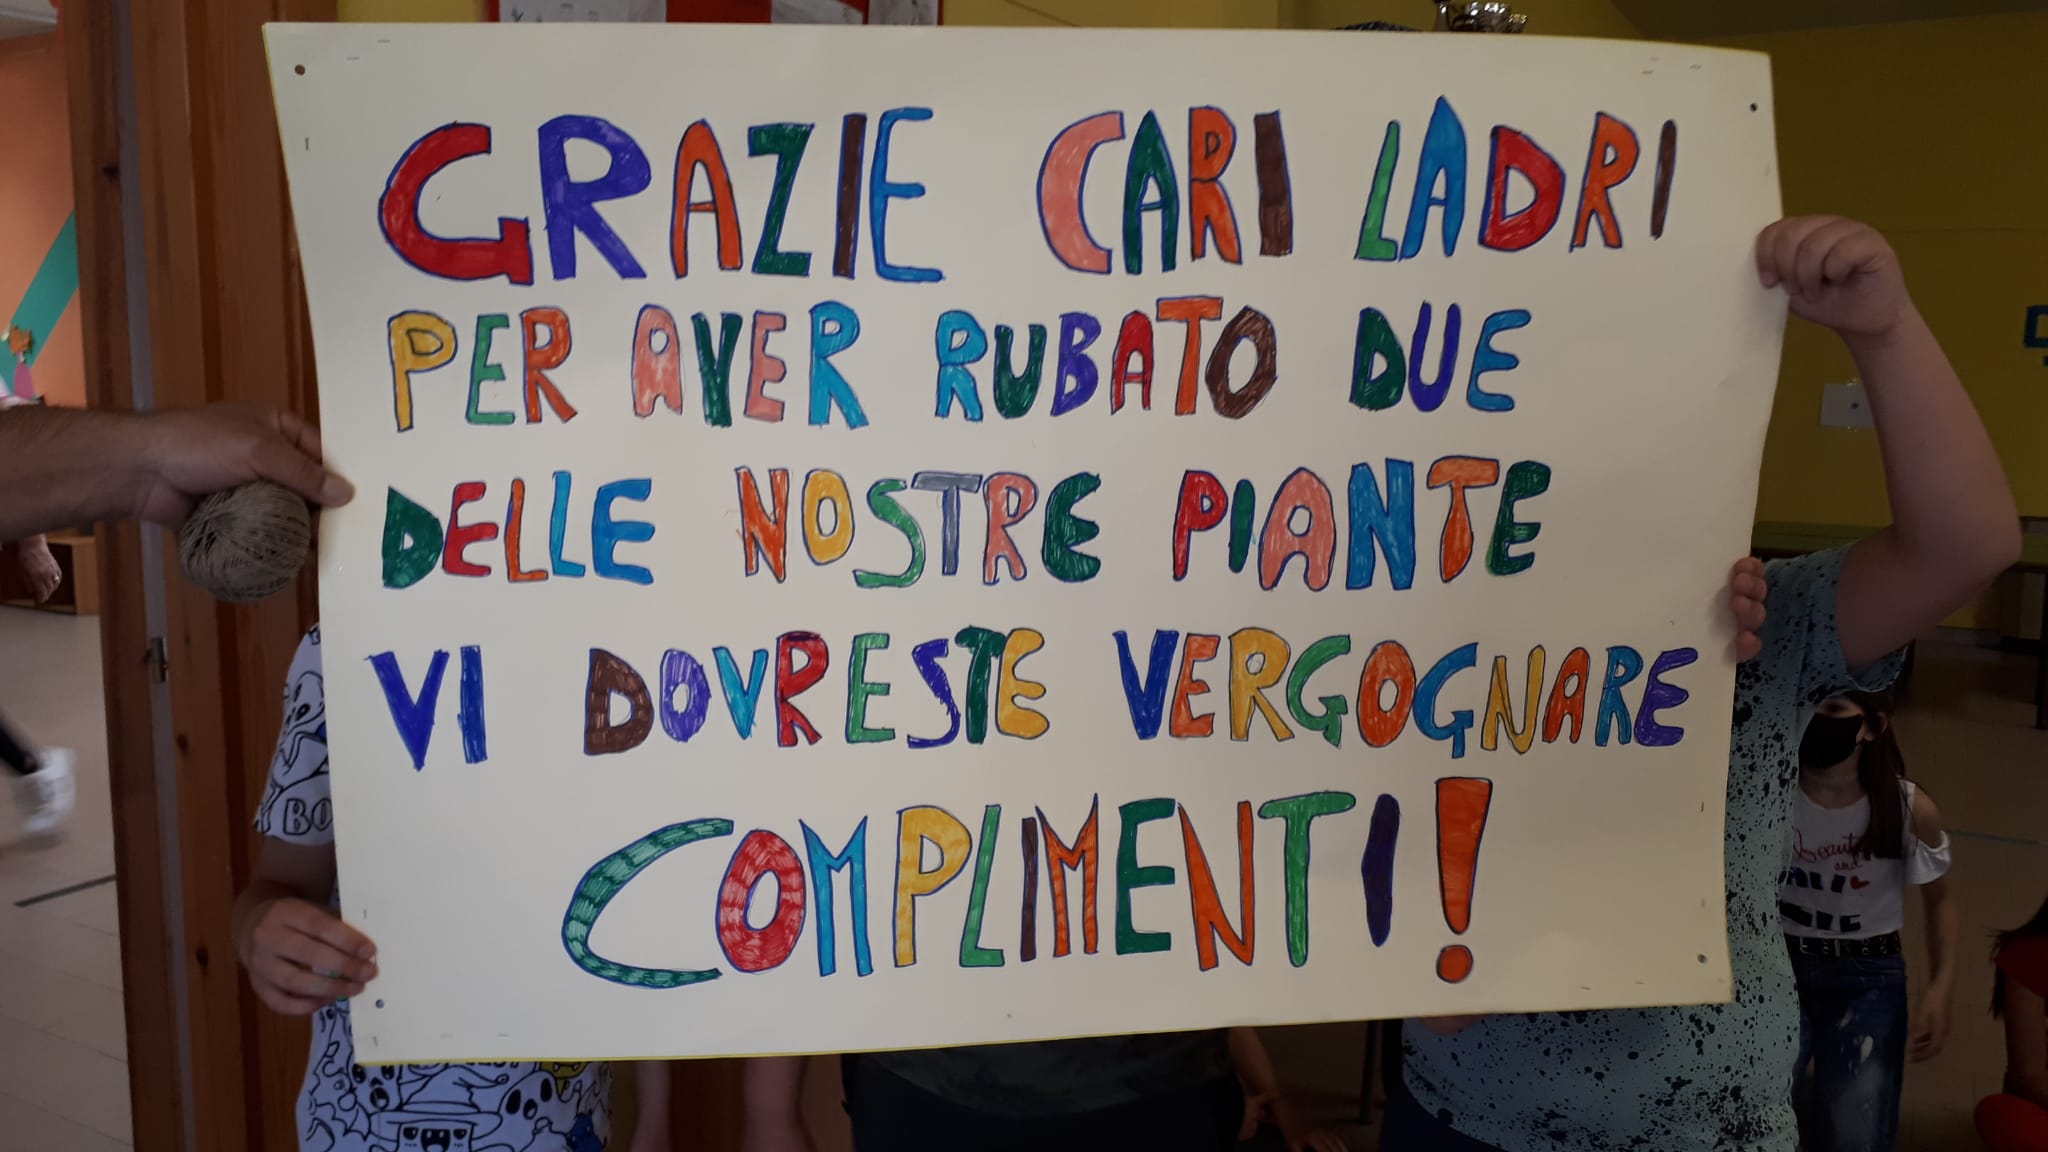 GRAZIE CARI LADRI
PER AVER RUBATO DUE
DELLE NOSTRE PIANTE
VI DOVRESTE VERGOGNARE
COMPLIMENTI!
BO
Beauty
and